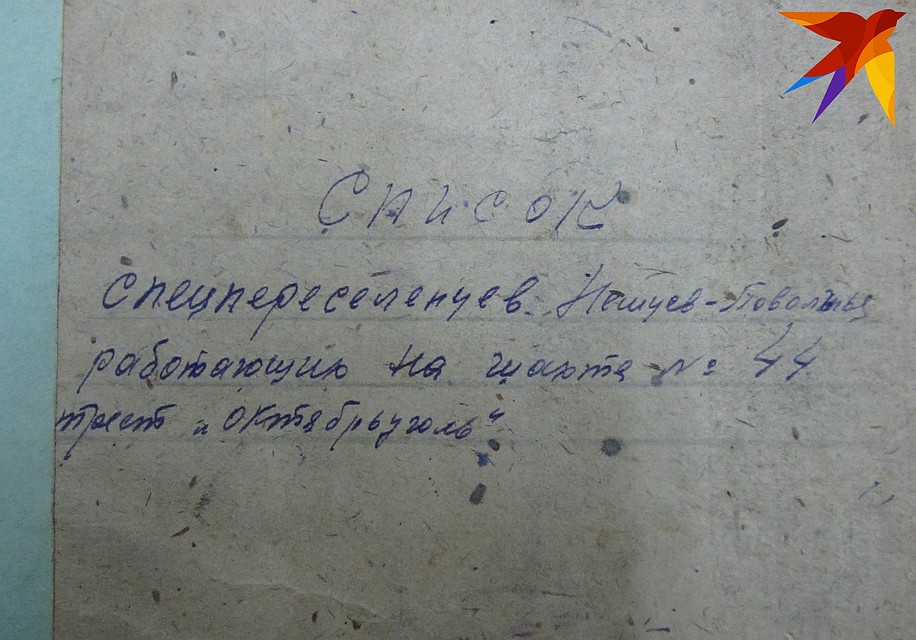 Список
спецпереселенцев. Немцев-Поволжья
работающих на шахте № 44
трест „Октябрьуголь"